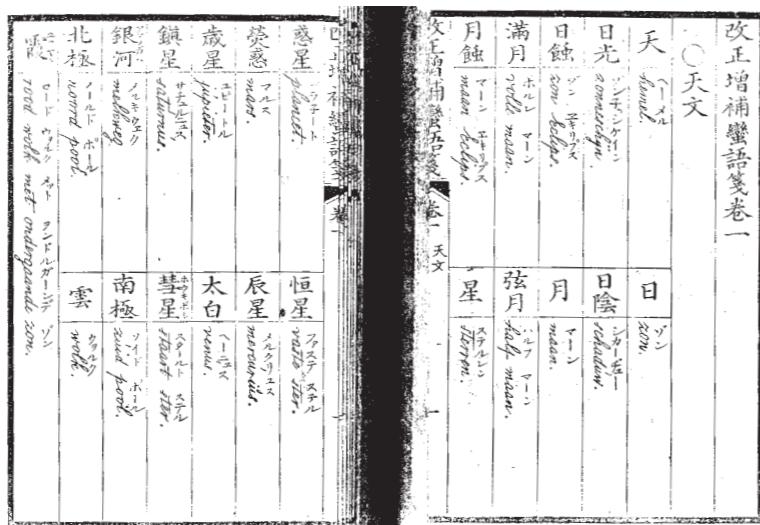 改正增補蠻語箋卷一
〇天文
天 ヘーメル hemel.
日 ゾン zon.
日光 zonneschijn.
日陰 schaduw.
日蝕 ゾン zon Eclips.
月 マーン maan.
滿月 マーン volle maan.
弦月 マーン half maan.
月蝕 マーン maan Eclips.
星 ステルレン sterren.
改正增補蠻語箋 卷一 天文 一
惑星 planet.
恒星 ファステ ステル vaste ster.
熒惑 マルス mars.
辰星 メルクリュス mercurius.
歳星 jupiter.
太白 venus.
鎮星 サチュルニュス saturnus.
彗星 スタールト ステル staart ster.
銀河 メルキウェク melkweg
南極 ソイド ポール zuid pool.
北極 ノールド ポール noord pool.
雲 wolk.
霞 ロード ウヲルク メット ヲンドルガーンデ ゾン rood wolk met ondergaande zon.